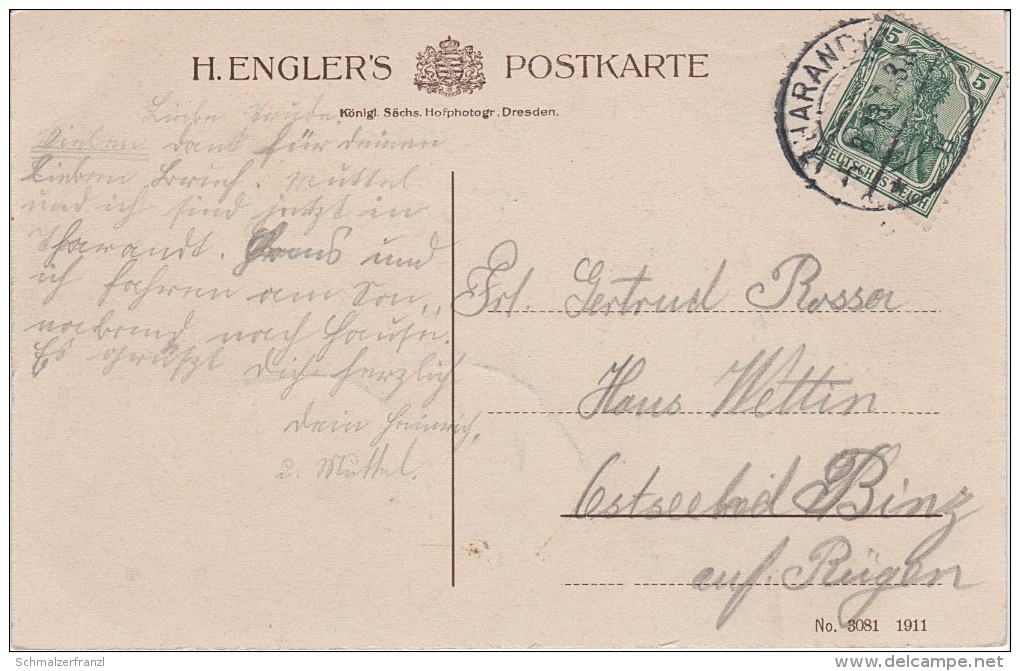 H. ENGLER'S POSTKARTE
Königl. Sächs. Hofphotogr. Dresden.
THARANDT
5 5
DEUTSCHES REICH
Liebe Trude.
Vielen Dank für deinen
lieben Brief. Muttel
und ich sind jetzt in
Tharandt. und
ich fahren am Son,,
nabend nach Hause.
Es grüszt Dich herzlich
Dein Heinrich,
u. Muttel.
Frl. Gertrud Rosser
Haus Wettin
Ostseebad Binz
auf. Rügen
No. 3081 1911
Schmalzerfranzl
delcampe.net